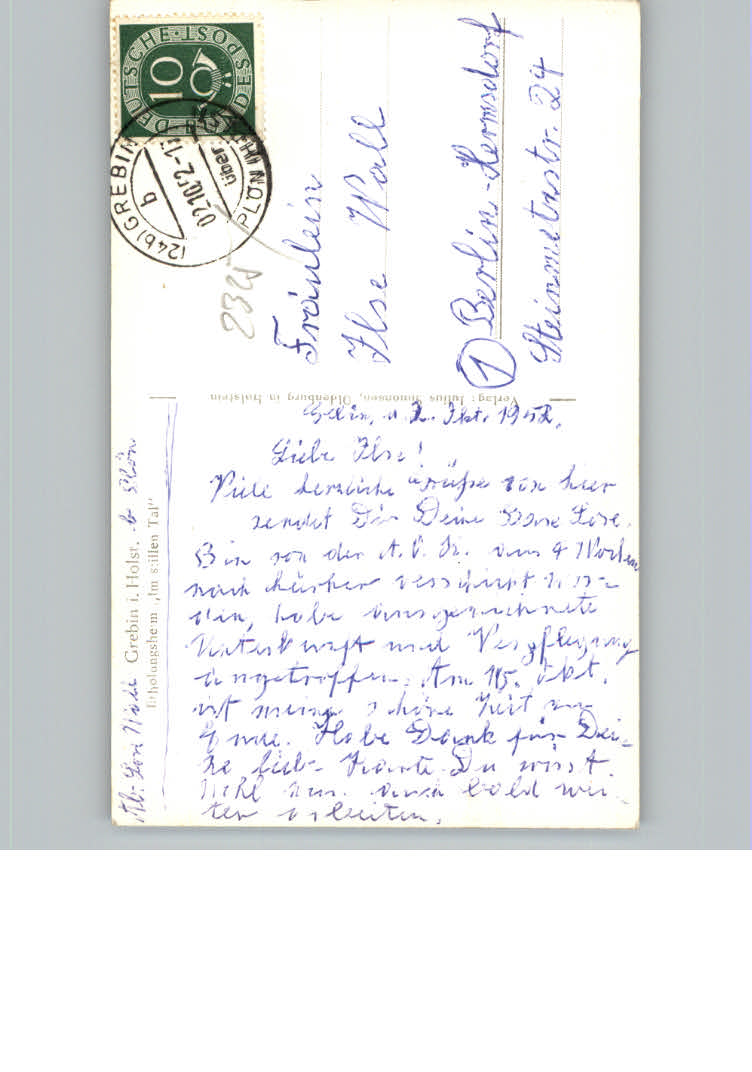 DEUTSCHE BUNDESPOST
10
(24b) GREBIN
über PLÖN (HOLST)
02.10.52
b
2325
Fräulein
Ilse Wall
① Berlin-Hermsdorf
Steinmetzstr. 24
Verlag: Julius Simonsen, Oldenburg in Holstein
Grebin, d. 2. Okt. 1952.
Liebe Ilse!
Viele herzliche Grüße von hier
sendet Dir Deine Lore.
Bin von der auf 4 Wochen
nach hierher verschickt wor-
den, habe ausgezeichnete
Unterkunft und Verpflegung
angetroffen. Am 15. Okt.
ist meine schöne Zeit zu
Ende. Habe Dank für Dei-
ne liebe Karte. Du wirst
wohl nun auch bald wei-
ter arbeiten.
Ab: Grebin i. Holst. b. Plön
Erholungsheim „Im stillen Tal"